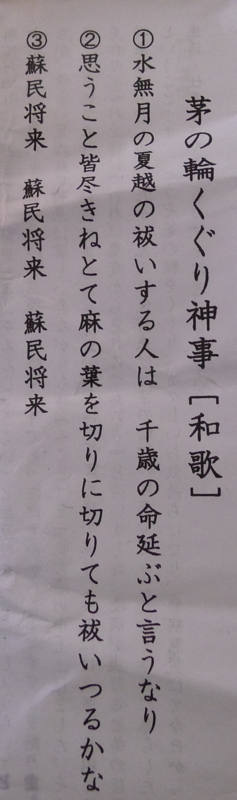 茅の輪くぐり神事[和歌]
①水無月の夏越の祓いする人は 千歳の命延ぶと言うなり
②思うこと皆尽きねとて麻の葉を切りに切りても祓いつるかな
③蘇民将来 蘇民将来 蘇民将来